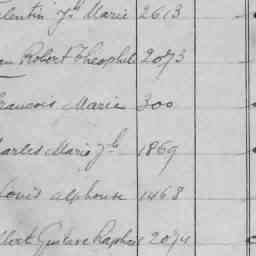 lentin Jh Marie 2613
Robert Théophile 2073
rancois Marie 300
harles Marie Jh 1869
ouis alphonse 1468
lbert Gustave Raphaël 2074